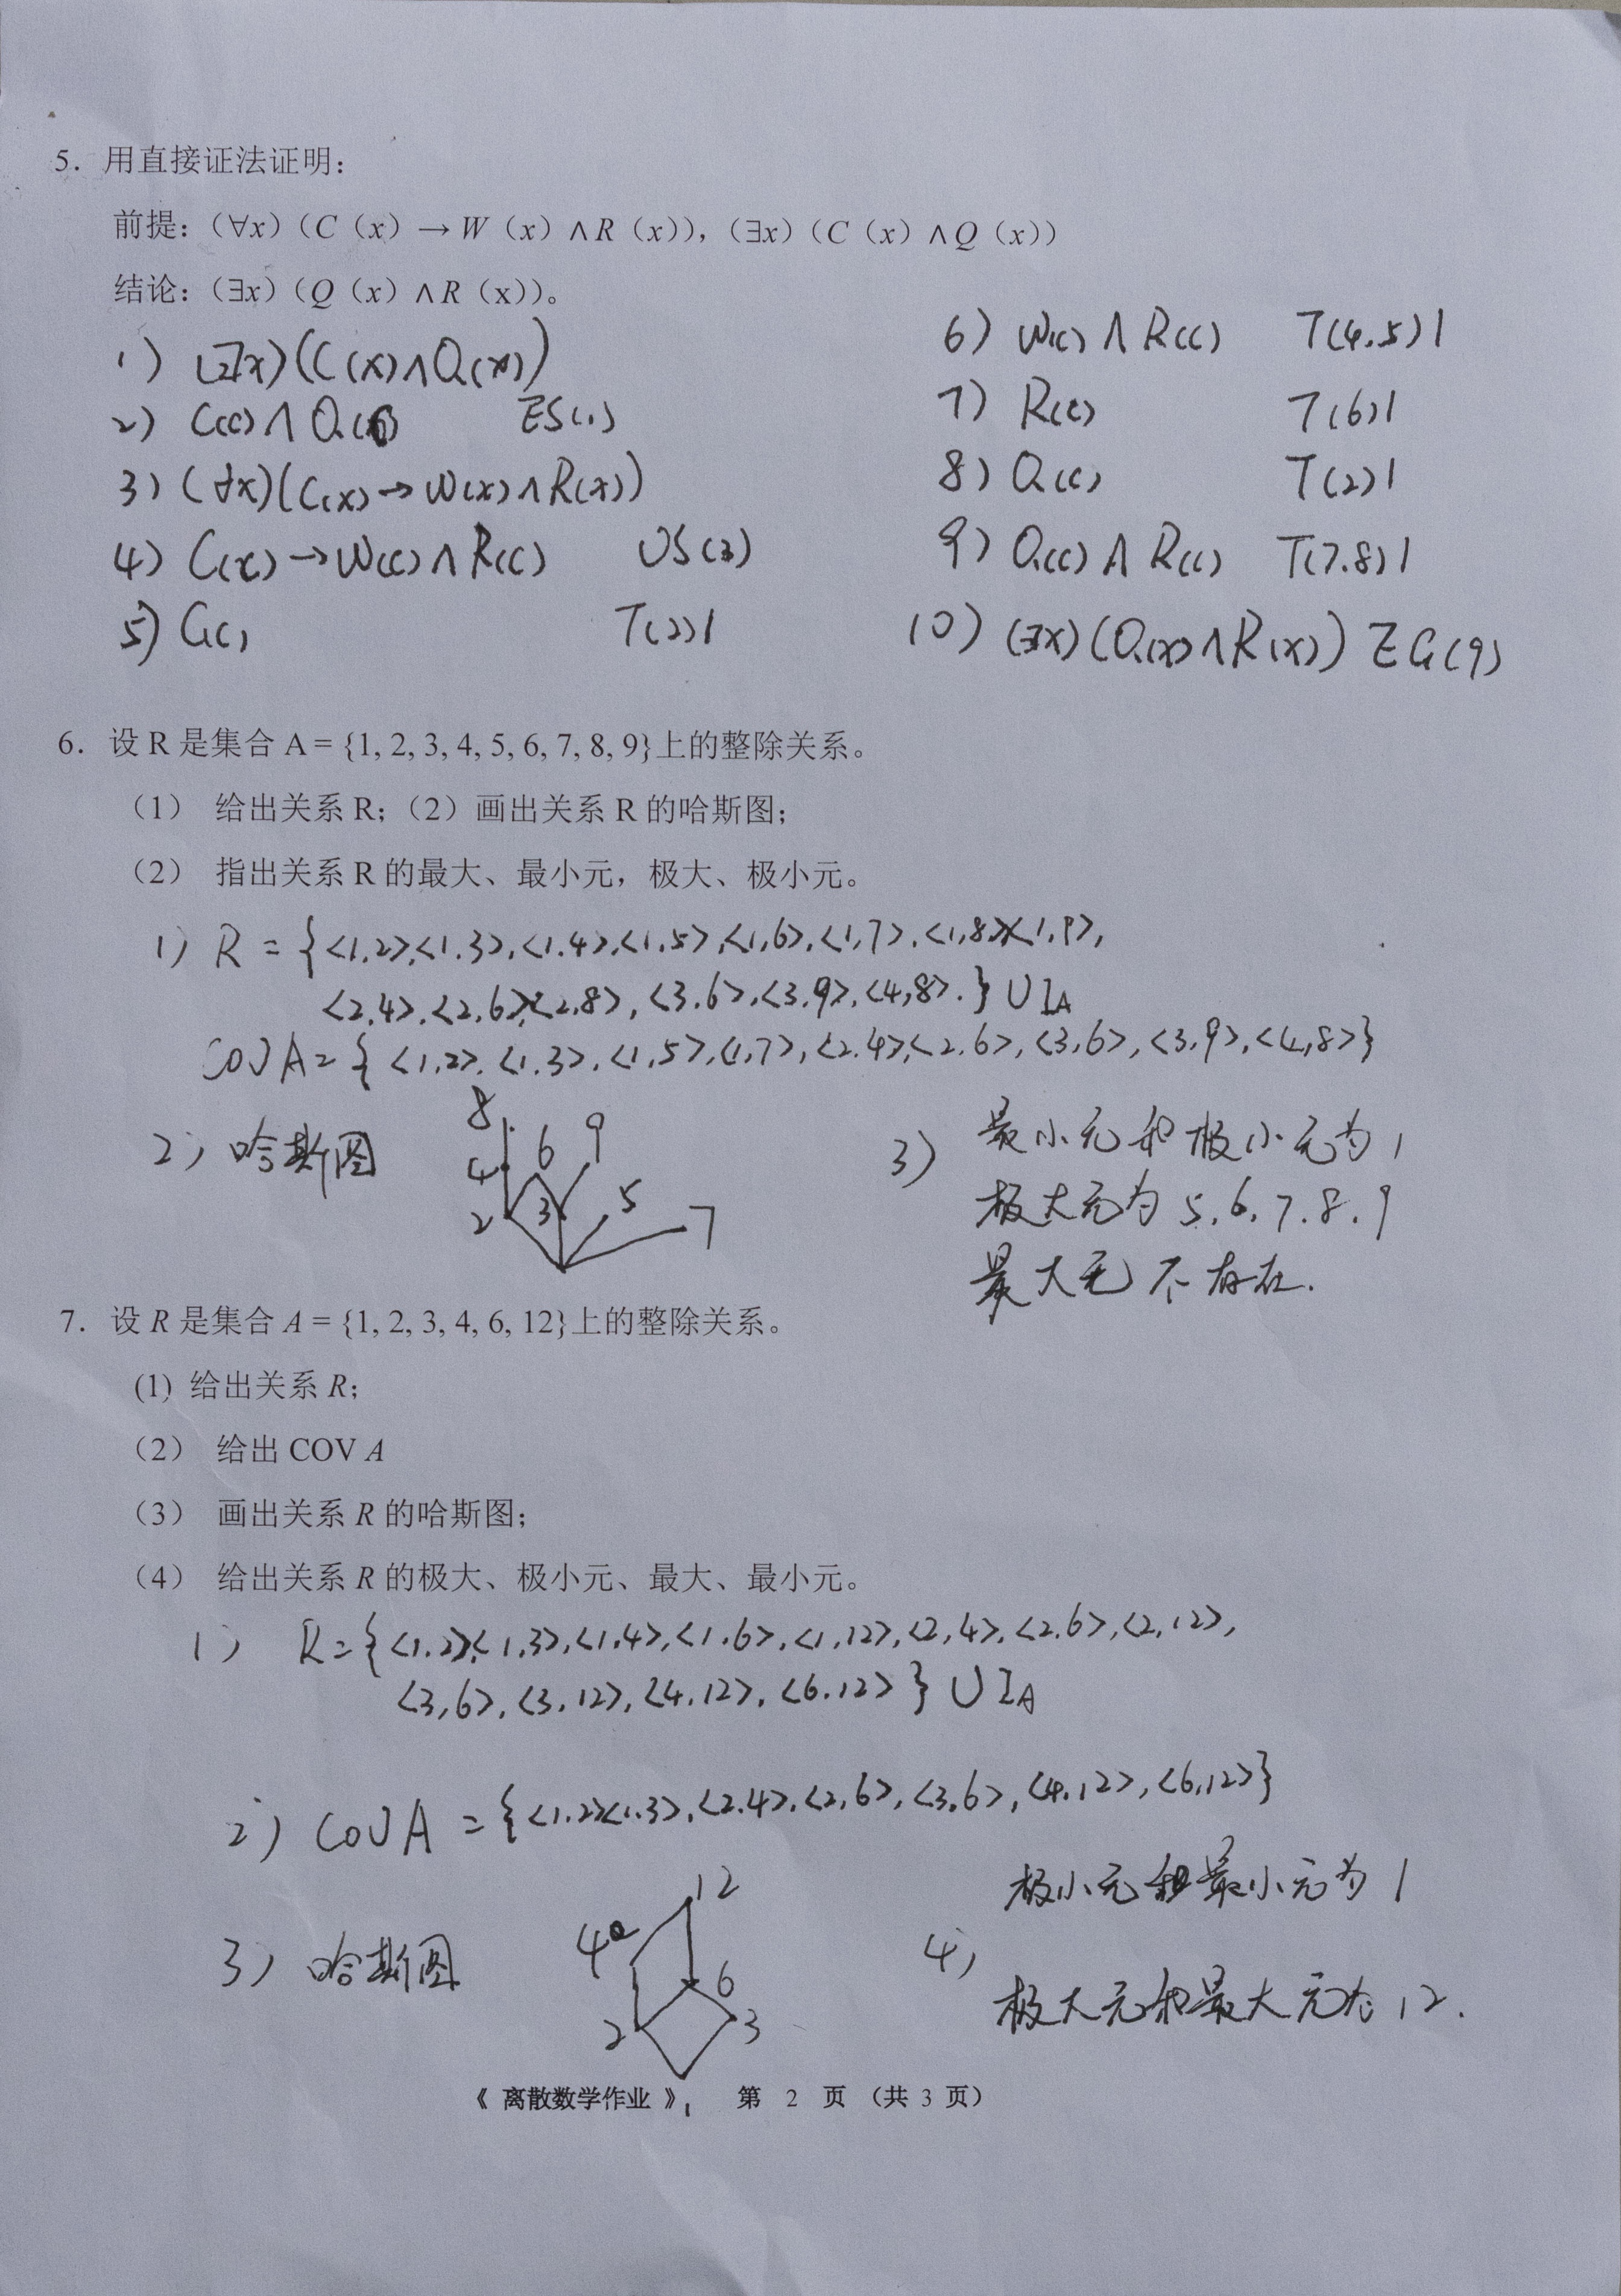 5. 用直接证法证明：
前提：（∀x）（C（x）→ W（x）∧R（x）），（∃x）（C（x）∧Q（x））
结论：（∃x）（Q（x）∧R（x））。
1) (∃x)(C(x)∧Q(x))
2) C(c)∧Q(c) ES(1)
3) (∀x)(C(x)→W(x)∧R(x))
4) C(c)→W(c)∧R(c) US(3)
5) C(c) T(2)I
6) W(c)∧R(c) T(4.5)I
7) R(c) T(6)I
8) Q(c) T(2)I
9) Q(c)∧R(c) T(7.8)I
10) (∃x)(Q(x)∧R(x)) EG(9)
6. 设 R 是集合 A = {1, 2, 3, 4, 5, 6, 7, 8, 9}上的整除关系。
（1） 给出关系 R；（2）画出关系 R 的哈斯图；
（2） 指出关系 R 的最大、最小元，极大、极小元。
1) R = {<1.2>,<1.3>,<1.4>,<1.5>,<1,6>,<1,7>,<1,8>,<1,9>,
<2,4>,<2,6>,<2,8>,<3.6>,<3.9>,<4,8>.}∪I_A
COVA = {<1,2>,<1.3>,<1,5>,<1,7>,<2.4>,<2.6>,<3,6>,<3.9>,<4,8>}
2) 哈斯图
8
6 9
4
2 3 5
7
3) 最小元和极小元为1
极大元为5.6.7.8.9
最大元不存在.
7. 设 R 是集合 A = {1, 2, 3, 4, 6, 12}上的整除关系。
(1) 给出关系 R；
（2） 给出 COV A
（3） 画出关系 R 的哈斯图；
（4） 给出关系 R 的极大、极小元、最大、最小元。
1) R={<1.2>,<1,3>,<1.4>,<1.6>,<1,12>,<2,4>,<2.6>,<2,12>,
<3,6>,<3,12>,<4.12>,<6.12>}∪I_A
2) COVA = {<1.2>,<1.3>,<2.4>,<2,6>,<3,6>,<4,12>,<6,12>}
3) 哈斯图
12
4
6
2 3
1
4) 极小元和最小元为1
极大元和最大元为12.
《 离散数学作业 》 第 2 页 （共 3 页）